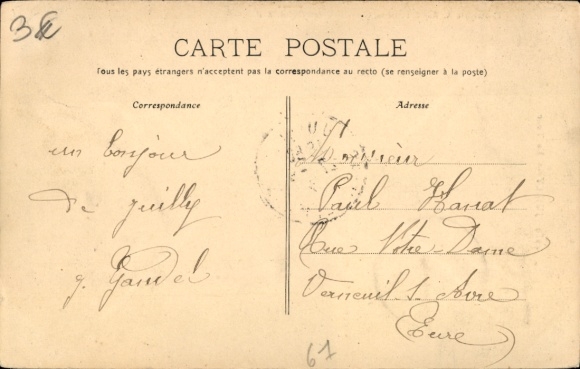 3€
CARTE POSTALE
Tous les pays étrangers n'acceptent pas la correspondance au recto (se renseigner à la poste)
Correspondance
Adresse
un bonjour
de Juilly
g. Gandel
Monsieur
Paul Hanat
Rue Notre-Dame
Verneuil s. Avre
(Eure)
67